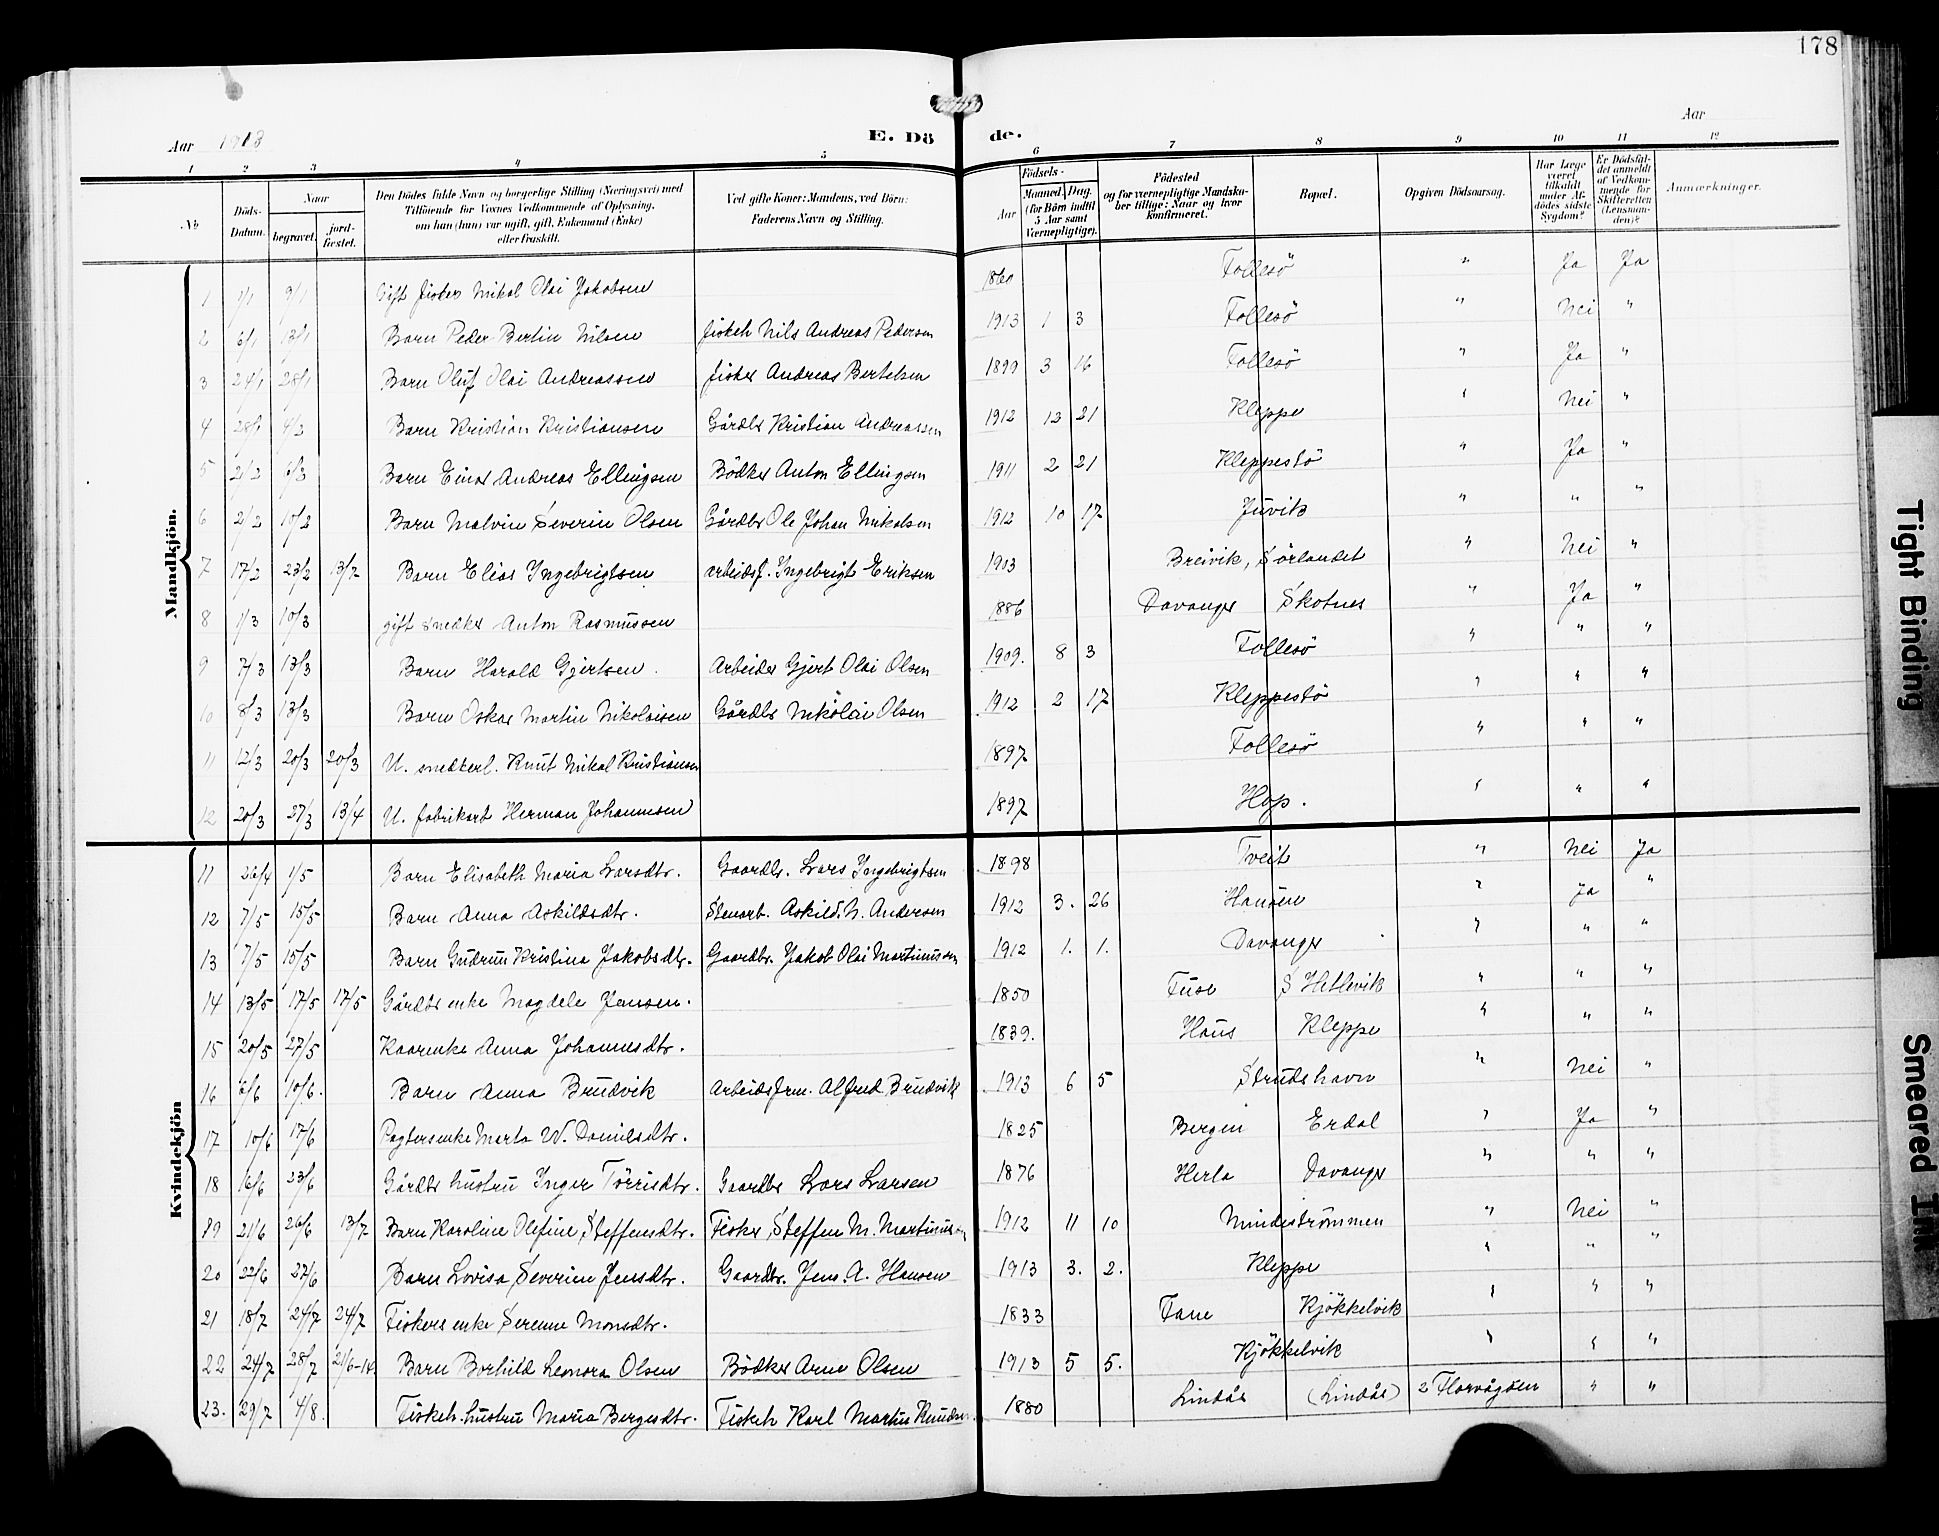 178
Aar 1913
E. Döde.
Aar
1 2 3 4 5 6 7 8 9 10 11 12
No
Döds-Datum.
Naar
begravet.
jordfæstet.
Den Dödes fulde Navn og borgerlige Stilling (Næringsvei) med Tilföiende for Voxnes Vedkommende af Oplysning, om han (hun) var ugift, gift, Enkemand (Enke) eller fraskilt.
Ved gifte Koner: Mandens, ved Börn: Faderens Navn og Stilling.
Födsels-
Aar
Maaned. Dag.
(for Börn indtil 5 Aar samt Værnepligtige).
Födested og for værnepligtige Mandskaber tillige: Naar og hvor konfirmeret.
Bopæl.
Opgiven Dödsaarsag.
Har Læge været tilkaldt under Afdödes sidste Sygdom?
Er Dödsfaldet anmeldt af Vedkommende for Skifteretten (Lensmanden)?
Anmærkninger.
Mandkjön.
1 1/1 9/1 Gift fisker Nikol Olai Jakobsen 1860 Follesö " Ja Ja
2 6/1 13/1 Barn Peder Bertin Nilsen fiskeh Nils Andreas Pedersen 1913 1 3 Follesö " Nei "
3 24/1 28/1 Barn Oluf Olai Andreassen fisker Andreas Bertelsen 1899 3 16 Follesö " Ja "
4 28/1 4/2 Barn Kristian Kristiansen Gårdbr Kristian Andreassen 1912 12 21 Kleppe " Nei "
5 2/2 6/2 Barn Einar Andreas Ellingsen Bödker Anton Ellingsen 1911 2 21 Kleppestö " Ja "
6 2/2 10/2 Barn Malvin Severin Olsen Gårdbr Ole Johan Nikolsen 1912 10 17 Juvik " " "
7 17/2 23/2 13/7 Barn Elias Ingebrigtsen arbeidsf. Ingebrigt Eriksen 1903 Breivik, Sörlandet " Nei "
8 1/3 10/3 gift snedker Anton Rasmussen 1886 Davanger Skotnes " Ja "
9 7/3 13/3 Barn Harald Gjertsen. Arbeider Gjert Olai Olsen 1909. 8 3 Follesö " " "
10 8/3 13/3 Barn Oskar Martin Nikolaisen Gårdbr Nikolai Olsen 1912 2 17 Kleppestö " " "
11 12/3 20/3 20/3 U. snedkerl. Knut Nikol Kristiansen 1897 Follesö " " "
12 20/3 27/3 13/4 U. fabrikarb Herman Johannesen 1897 Hop. " " "
Kvindekjön
11 26/4 1/5 Barn Elisabeth Maria Larsdtr. Gaardbr. Lars Ingebrigtsen 1898 Tveit " Nei Ja
12 7/5 15/5 Barn Anna Askildsdtr. Stenarb. Askild N. Andersen 1912 3. 26 Hanöen " ja "
13 7/5 15/5 Barn Gudrun Kristina Jakobsdtr. Gaardbr. Jakob Olai Martinussen 1912 1. 1. Davanger " " "
14 13/5 17/5 17/5 Gårdbr enke Magdele Jensen. 1850 Fuse S Hetlevik " " "
15 20/5 27/5 Kaarenke Anna Johannesdtr. 1839. Haus Kleppe " " "
16 6/6 10/6. Barn Anna Brudvik Arbeidsfrm. Alfred Brudvik 1913 6 5 Strudshavn " Nei "
17 10/6 17/6 Pagtersenke Marta W. Danielsdtr. 1825 Bergen Erdal " Ja "
18 16/6 23/6 Gårdbr hustru Inger Törrisdtr. Gaardbr Lars Larsen 1876 Herla Davanger " " "
19 21/6 26/6 13/7 Barn Karoline Olefine Steffensdtr. Fisker Steffen M. Martinussen 1912 11 10 Mindeströmmen " Nei "
20 22/6 27/6 Barn Lovisa Severine Jensdtr. Gaardbr. Jens A. Hansen 1913 3. 2. Kleppe " " "
21 18/7 24/7 24/7 Fiskers enke Serenne Monsdtr. 1833 Fane Kjökkelvik " " "
22 24/7 28/7 21/6-14. Barn Borhild Leonora Olsen Bödker Arne Olsen 1913 5 5. Kjökkelvik " " "
23. 29/7 4/8. Fiskeh. hustru Maria Bergesdtr. Fiskeh Karl Martin Knudsen. 1880 Lindås (Lindås) 2 Florvågöen " "
Tight Binding
Smeared Ink